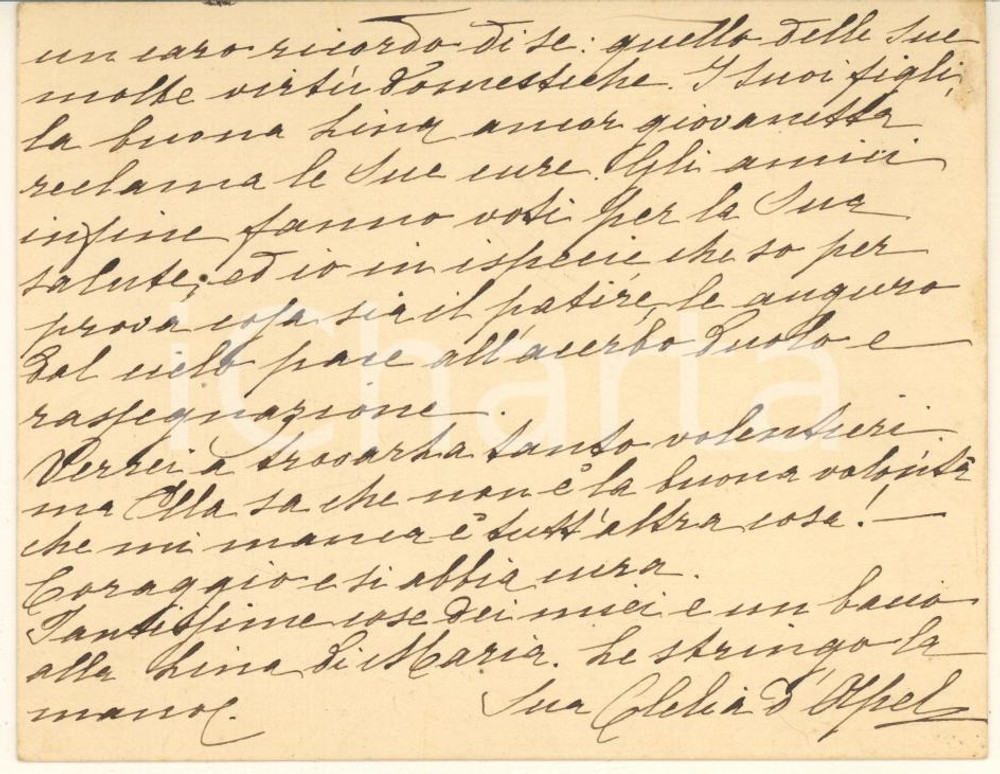 un caro ricordo di se: quello delle Sue
molte virtù domestiche. I suoi figli,
la buona Lina ancor giovanetta
reclama le Sue cure. Gli amici
infine fanno voti per la Sua
salute; ed io in ispecie che so per
prova cosa sia il patire, le auguro
dal cielo pace all'acerbo duolo e
rassegnazione.
Verrei a trovarLa tanto volentieri
ma Ella sa che non è la buona volontà
che mi manca è tutt'altra cosa! —
Coraggio e si abbia cura.
Tantissime cose dei miei e un bacio
alla Lina di Maria. Le stringo la
mano.
Sua Clelia d'
iCharta